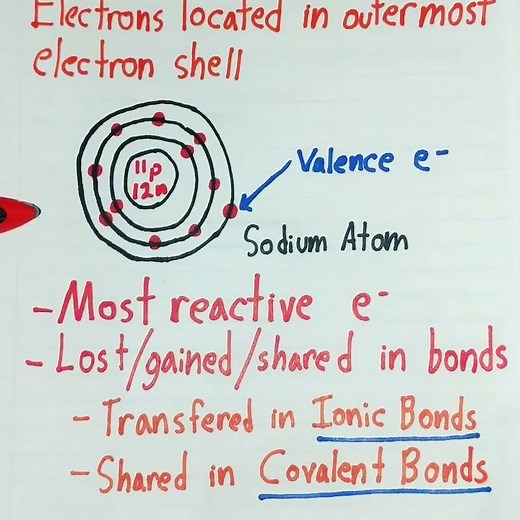 Electrons located in outermost
electron shell
11p
12n
Valence e-
Sodium Atom
- Most reactive e-
- Lost/gained/shared in bonds
- Transfered in Ionic Bonds
- Shared in Covalent Bonds